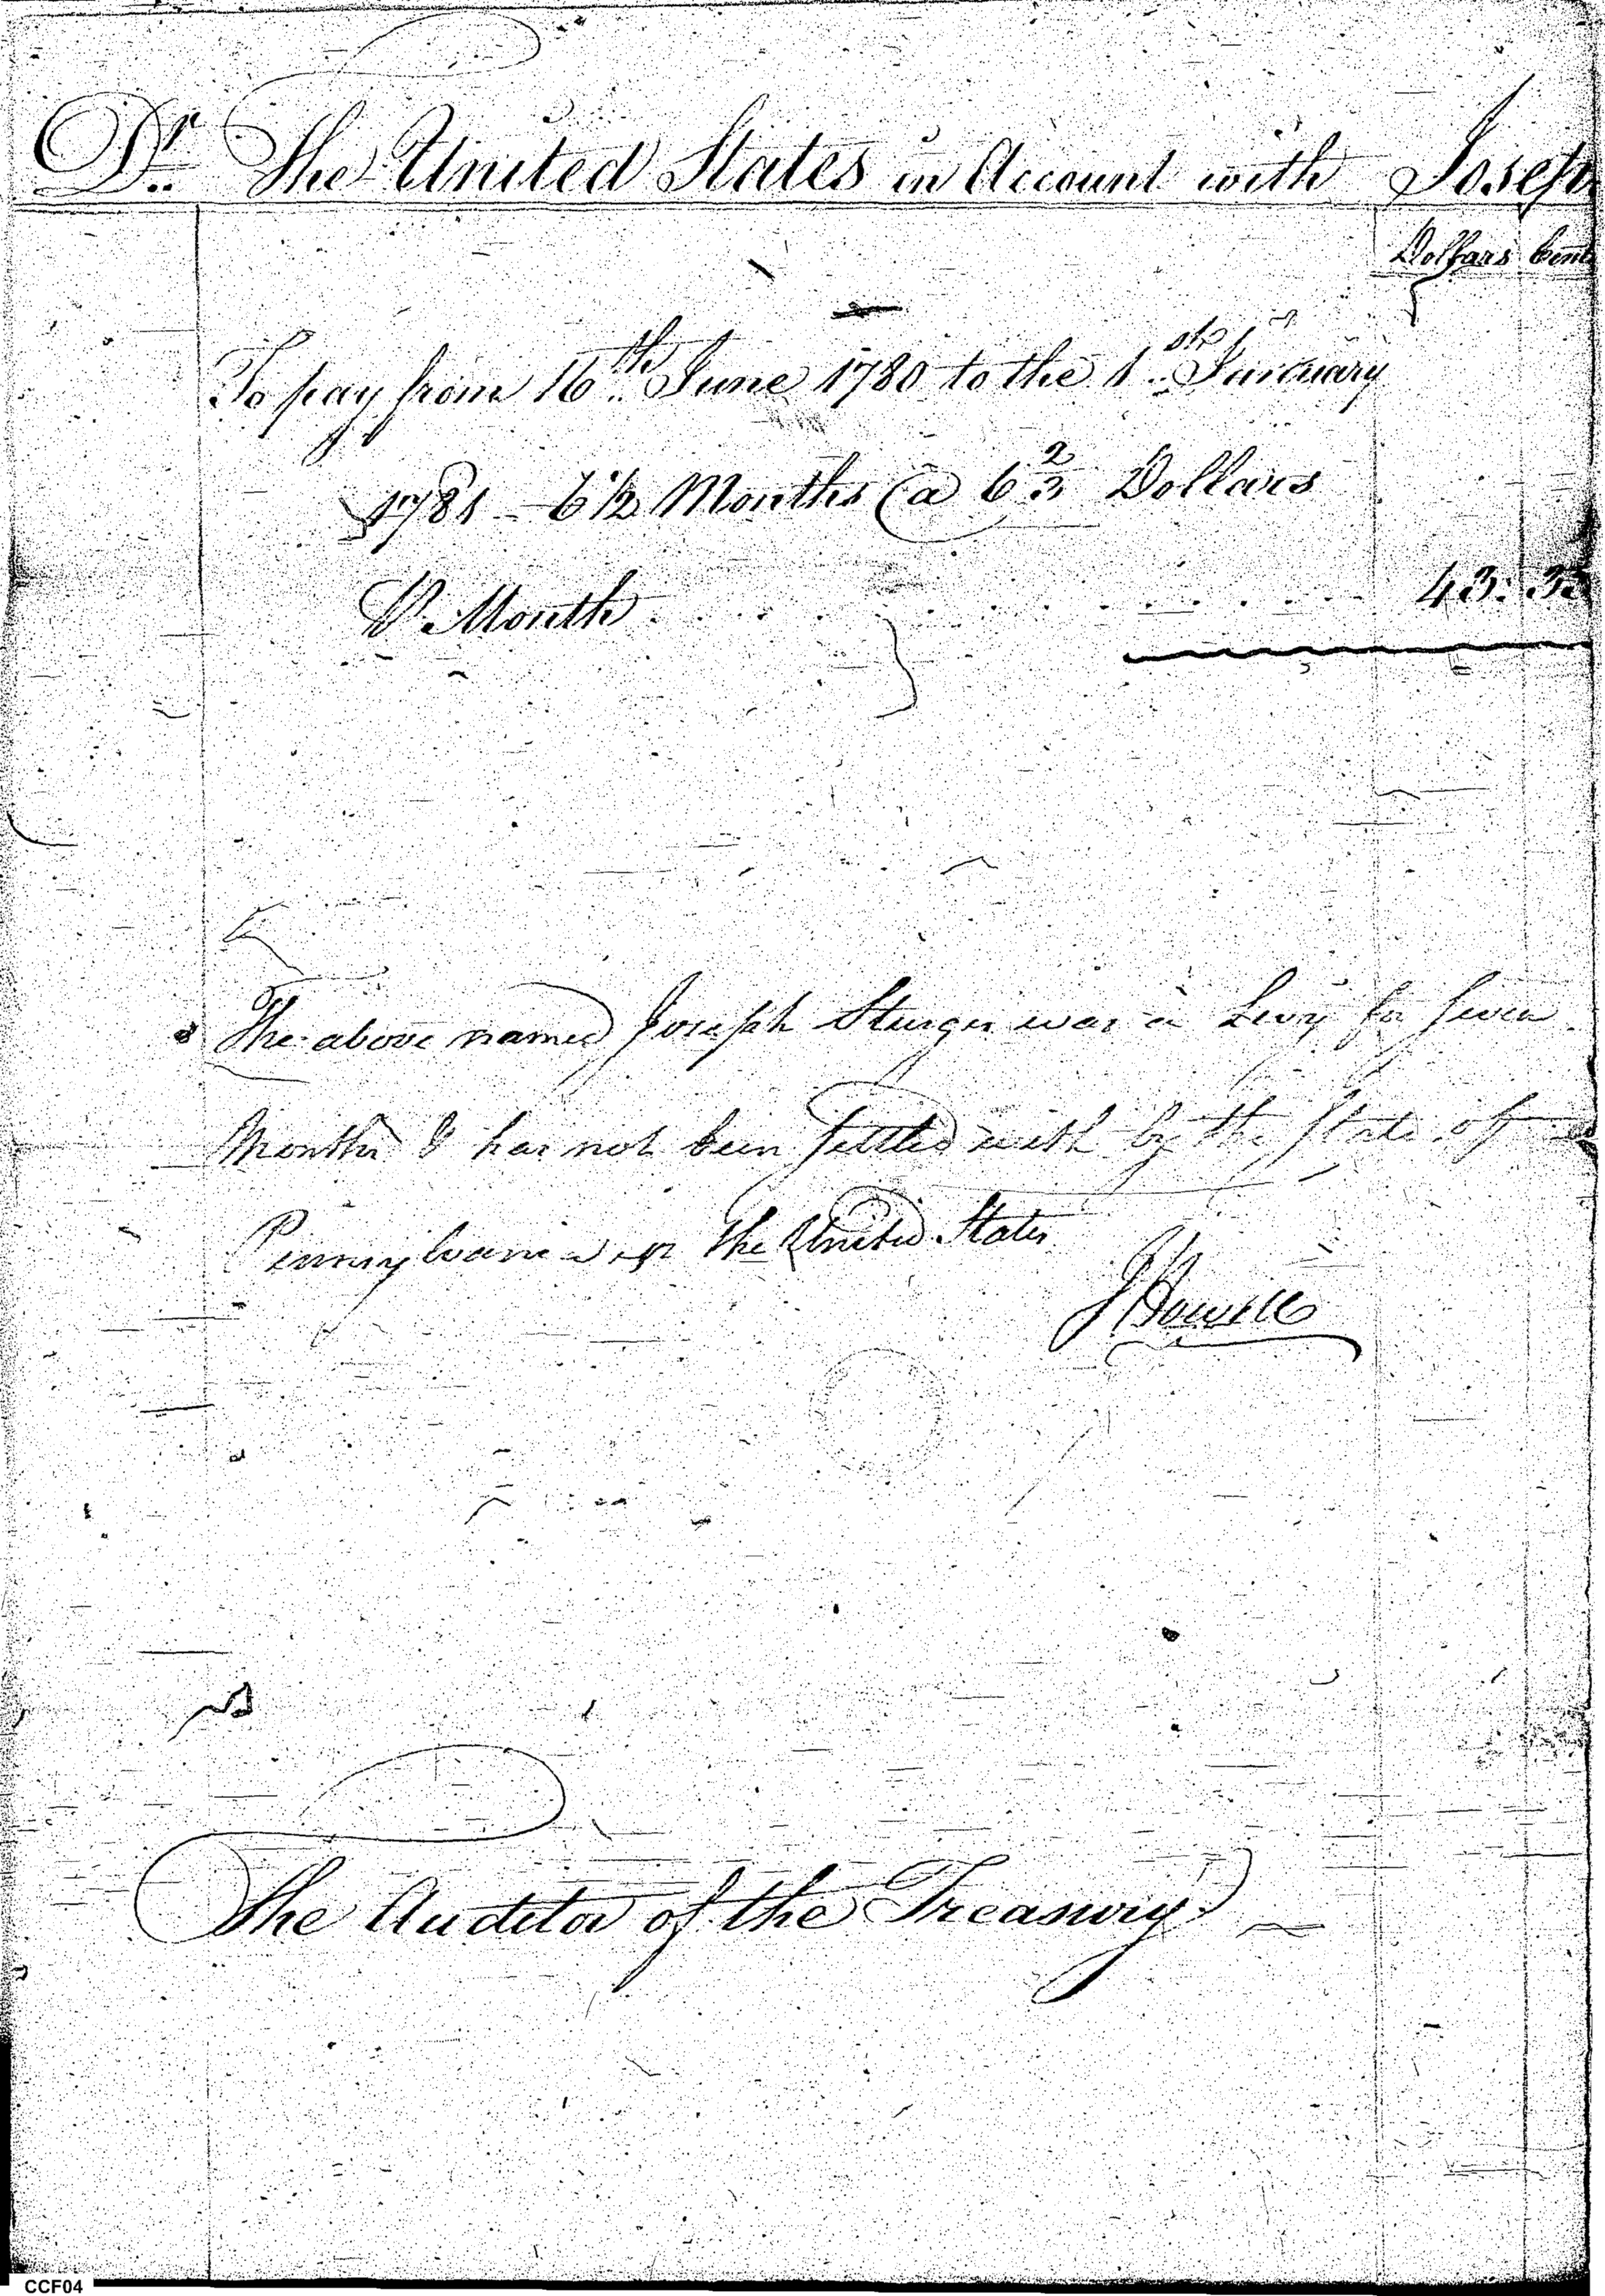 Dr. The United States in Account with Joseph
Dollars Cents
To pay from 16th June 1780 to the 1st January
1781 - 6 1/2 Months @ 6 2/3 Dollars
P. Month . . . . . . . . . . . . 43: 33
The above named Joseph Sturges was a Levy for seven
Months & has not been settled with by the State of
Pennsylvania or the United States
J Howell
The Auditor of the Treasury
CCF04